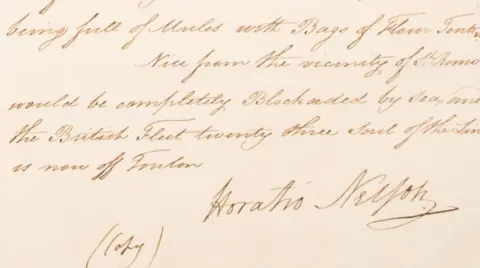 being full of Mules with Bags of Flour
Nice from the vicinity of St. Remo
would be completely Blockaded by sea, and
the British Fleet twenty three Sail of the Lin
is now off Toulon
Horatio Nelson
(Copy)